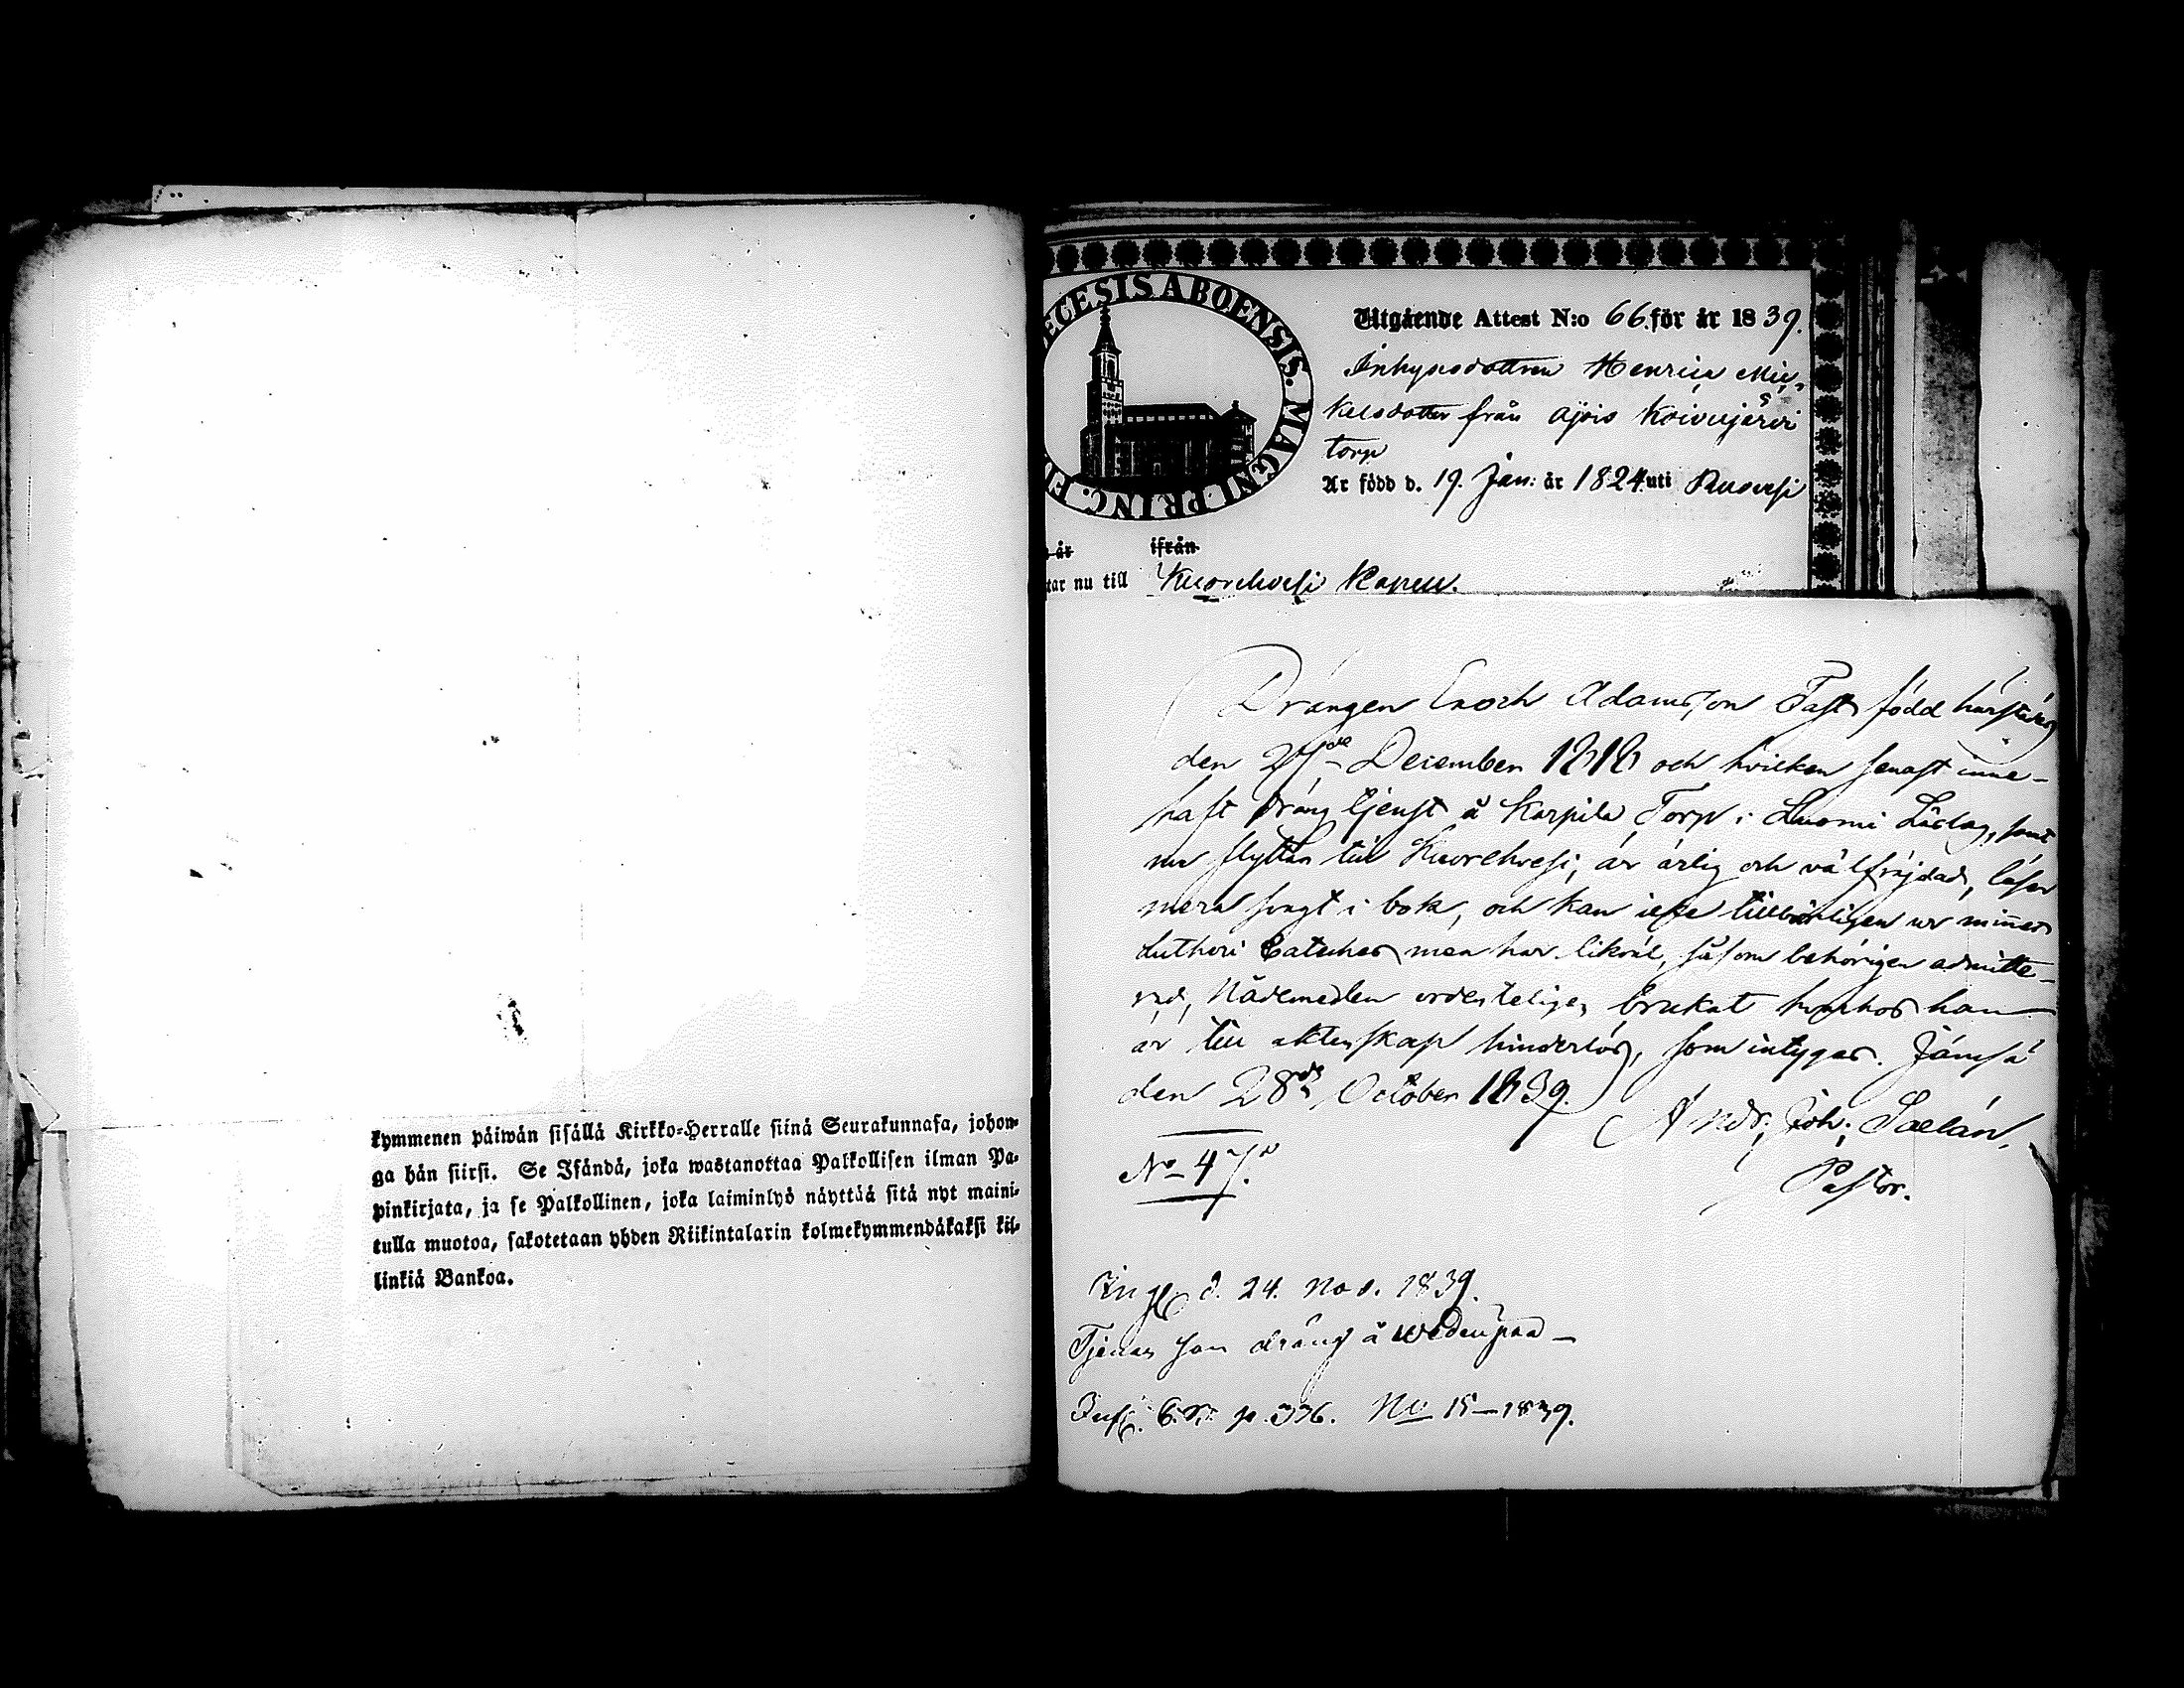 kymmenen päiwän sisällä Kirkko-Herralle siinä Seurakunnasa, johon-
ga hän siirsi. Se Isändä, joka wastanottaa Palkollisen ilman Pa-
pinkirjata, ja se Palkollinen, joka laiminlyö näyttää sitä nyt maini-
tulla muotoa, sakotetaan yhden Riikintalarin kolmekymmendäkaksi kil-
linkiä Bankoa.
ECESIS ABOENSIS. MAGNI PRINC. FI
Utgående Attest N:o 66. för år 1839.
Inhysesdottren Henrica Mic-
kelsdotter från Ajois Koivujärvi
torp
Är född d. 19. Jan: år 1824 uti Ruovesi
år ifrån
tar nu till Kuorehvesi Kapell.
Drängen Enoch Adamsson Fast, född härstädes
den 27de December 1818 och hvilken senast inne-
haft drängtjenst å Karpila Torp i Luomi Lädag, samt
nu flyttar till Kuorehvesi, är ärlig och välfräjdad, läser
mera svagt i bok, och kan icke tillbörligen ur minnet
Lutheri Cateches men har likväl, såsom behörigen admitte-
rad, Nådemedlen ordenteligen brukat hvarhos han
är till äktenskap hinderlös, som intygas. Jämsä
den 28de October 1839.
Andr. Joh. Saelan,
Pastor.
No 47.
Ingl. d. 24. Nov. 1839.
Tjenar som dräng å Wedenpää
p. 336. No 15-1839.